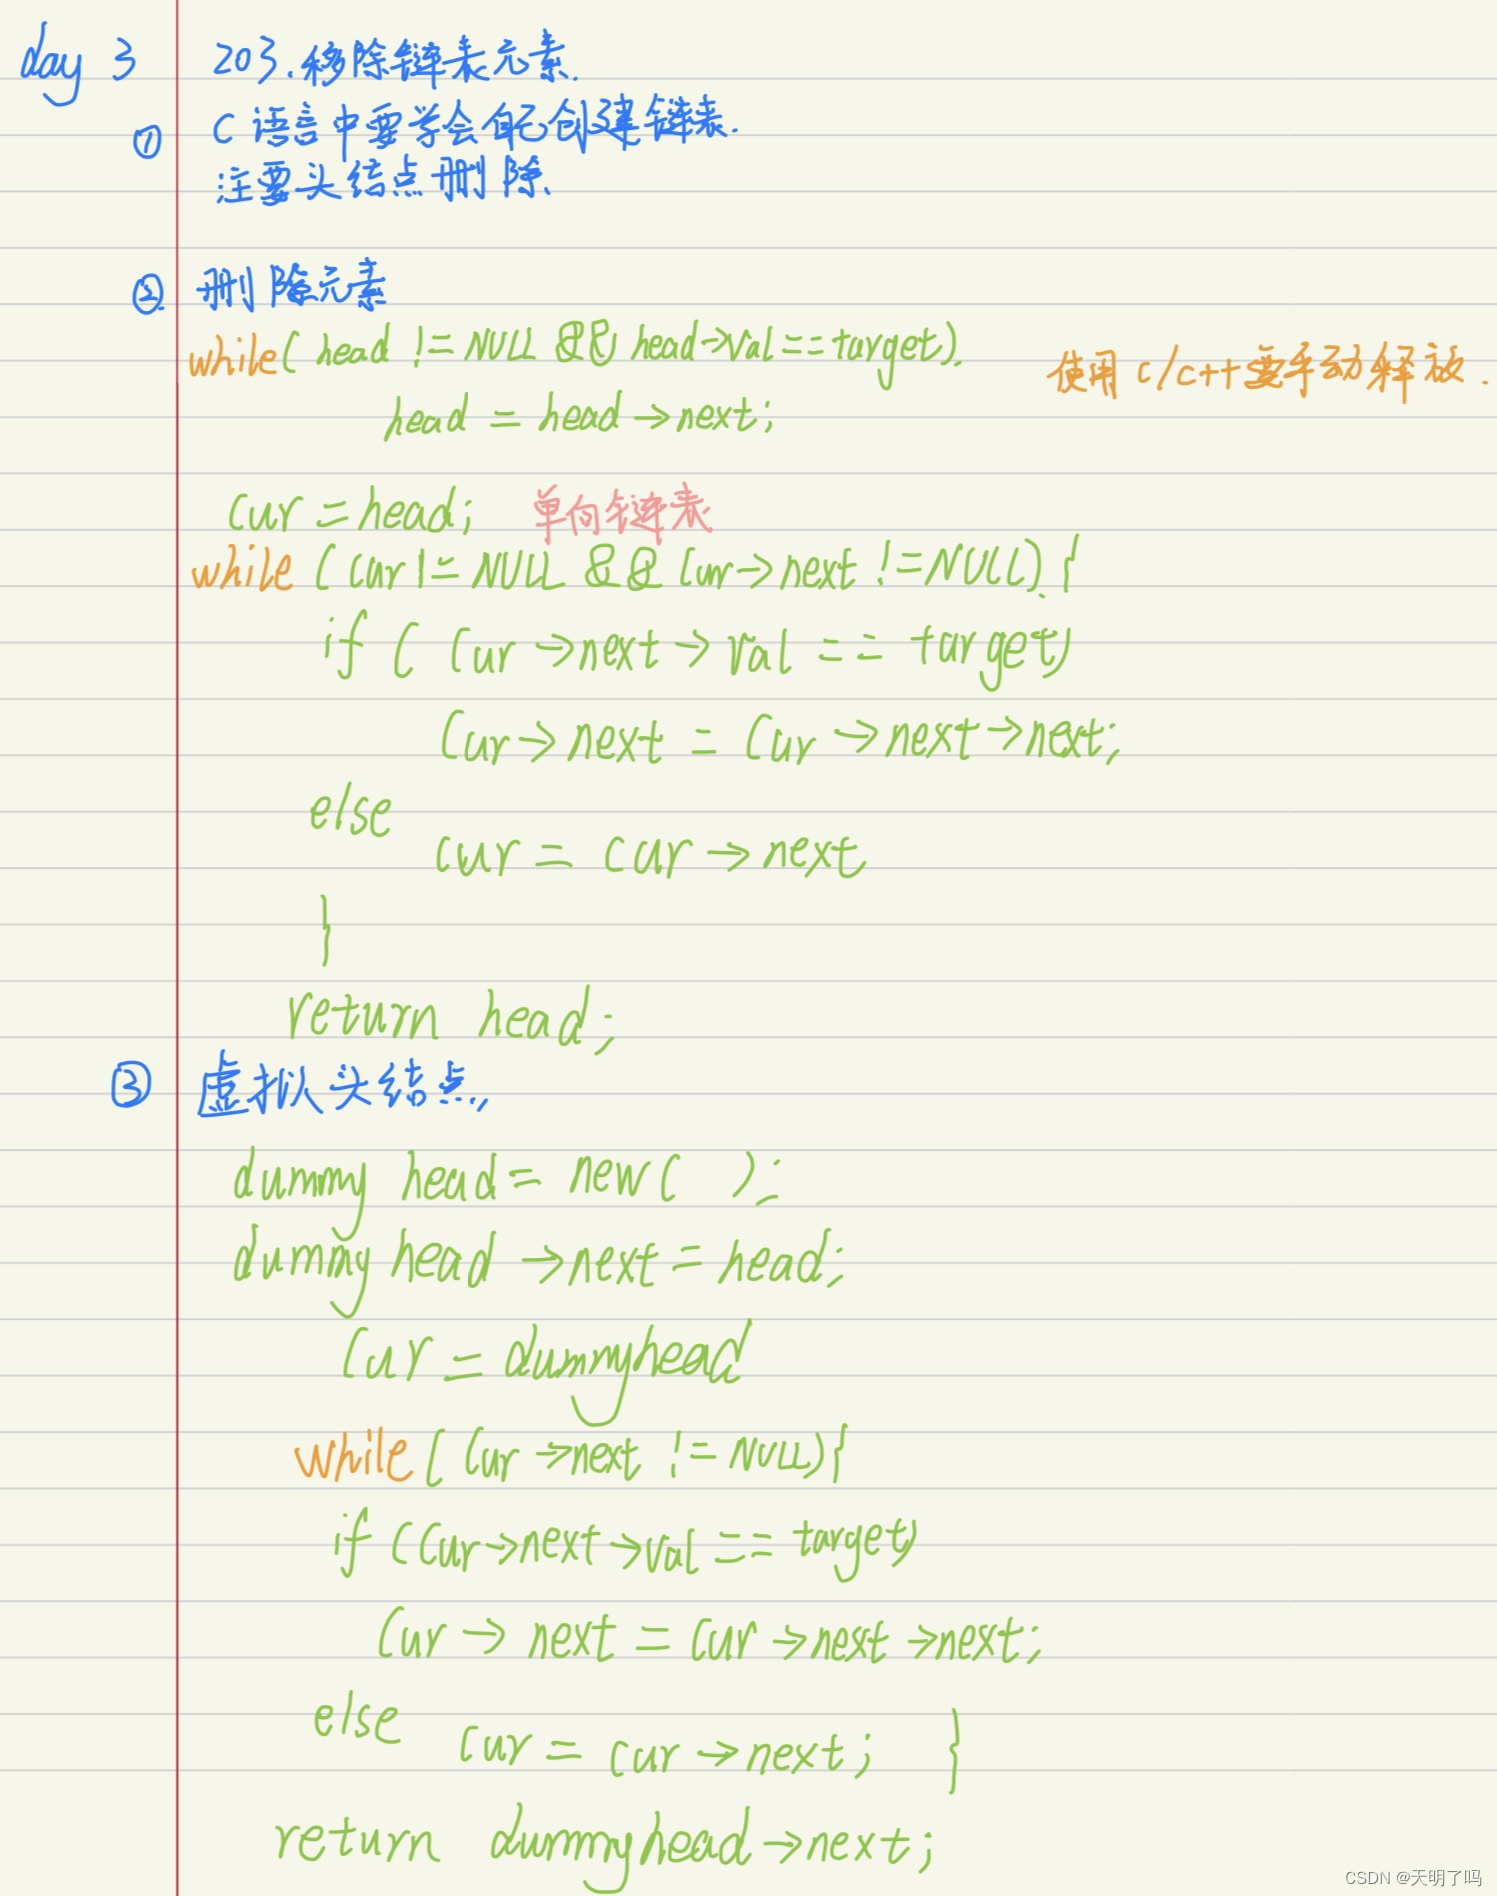 day 3
203.移除链表元素.
① C语言中要学会自己创建链表.
注要头结点删除.
② 删除元素
while( head != NULL && head→val == target).
使用 c/c++要手动释放.
head = head→next;
cur = head; 单向链表
while (cur != NULL && cur→next != NULL) {
if ( cur →next → val == target)
cur→ next = cur →next→next;
else
cur = cur → next
}
return head;
③ 虚拟头结点,
dummy head = new( );
dummy head →next = head;
cur = dummyhead
while( cur →next != NULL){
if (cur→next→val == target)
cur → next = cur →next →next;
else cur = cur →next; }
return dummyhead→next;
CSDN @天明了吗